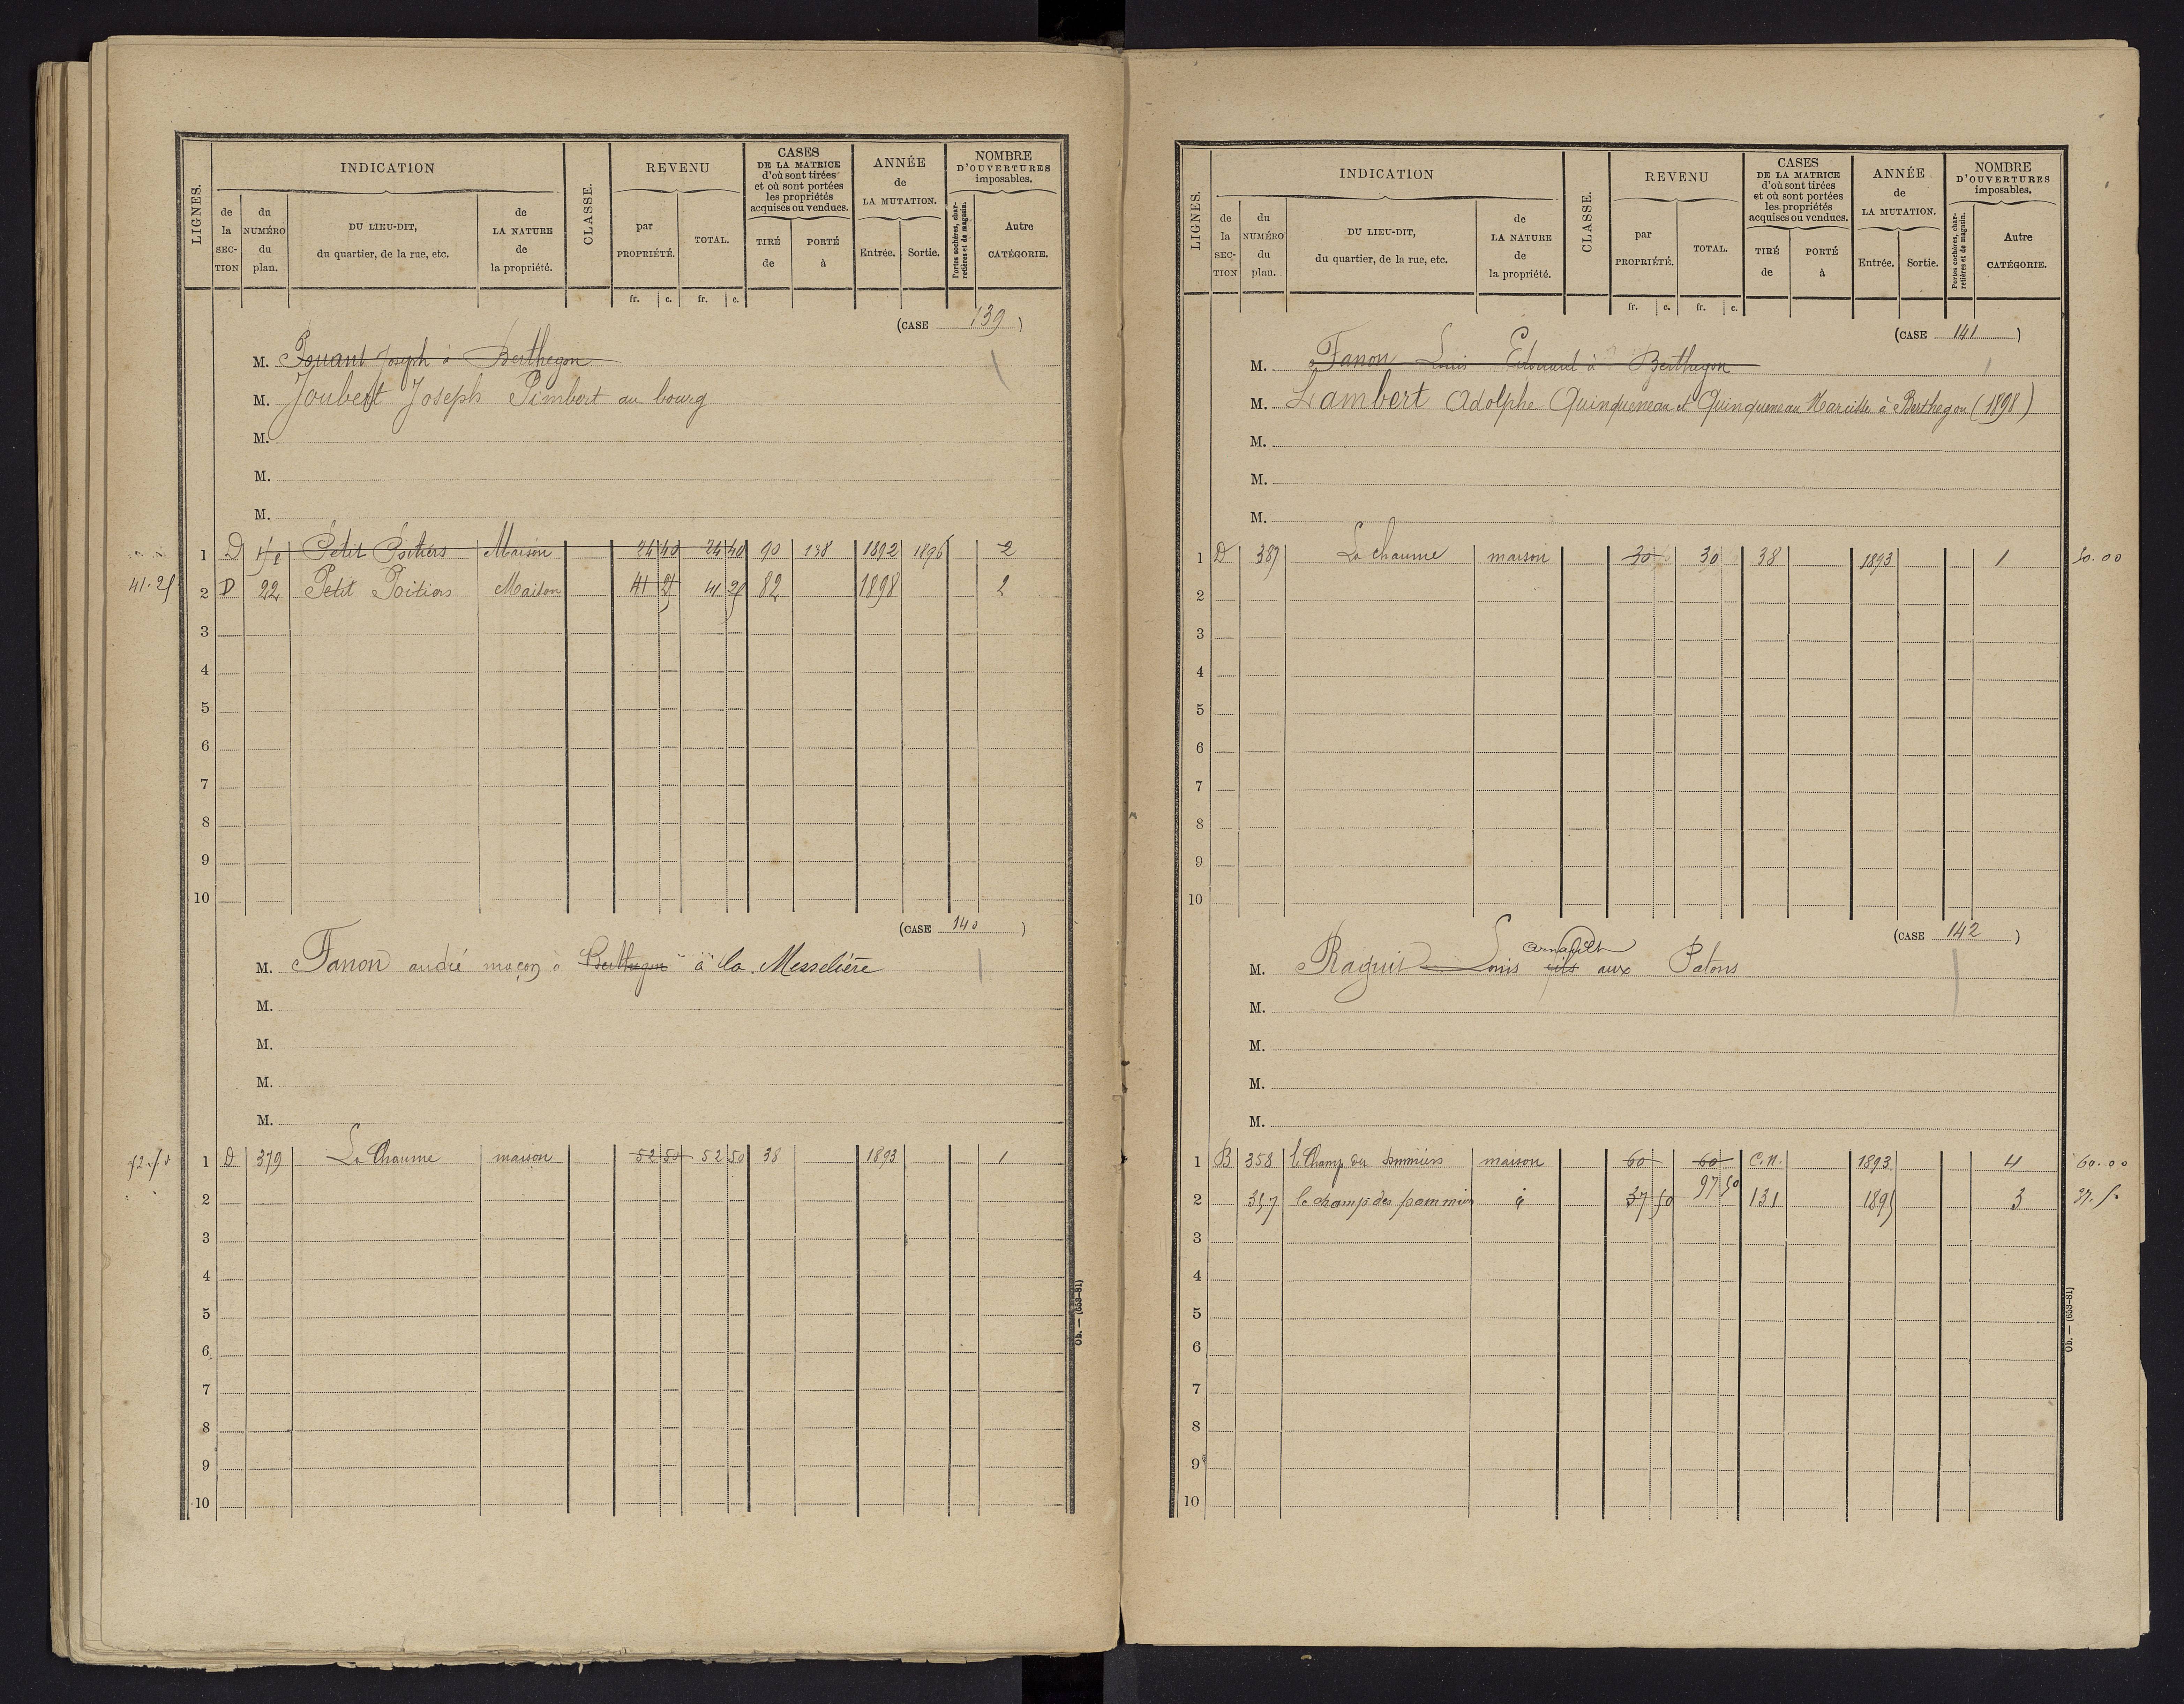 LIGNES. INDICATION CLASSE. REVENU CASES DE LA MATRICE d'où sont tirées et où sont portées les propriétés acquises ou vendues. ANNÉE de LA MUTATION. NOMBRE D'OUVERTURES imposables.
de la SECTION du NUMÉRO du plan. DU LIEU-DIT, du quartier, de la rue, etc. de LA NATURE de la propriété. par PROPRIÉTÉ. TOTAL. TIRÉ de PORTÉ à Entrée. Sortie. Portes cochères, charretières et de magasin. Autre CATÉGORIE.
fr. c. fr. c.
(CASE 139)
M. Joseph à Berthegon
M. Joubert Joseph Pimbert au bourg
M.
M.
M.
1 D Petit Poitiers Maison 24 40 24 40 90 138 1892 1896 2
41.25 2 D 22 Petit Poitiers Maison 41 25 41 25 82 1898 2
3
4
5
6
7
8
9
10
(CASE 140)
M. Fanon andré maçon à Berthegon à la Messelière
M.
M.
M.
M.
52.50 1 D 379 La Chaume maison 52 50 52 50 38 1893 1
2
3
4
5
6
7
8
9
10
Ob. — (653-81)
LIGNES. INDICATION CLASSE. REVENU CASES DE LA MATRICE d'où sont tirées et où sont portées les propriétés acquises ou vendues. ANNÉE de LA MUTATION. NOMBRE D'OUVERTURES imposables.
de la SECTION du NUMÉRO du plan. DU LIEU-DIT, du quartier, de la rue, etc. de LA NATURE de la propriété. par PROPRIÉTÉ. TOTAL. TIRÉ de PORTÉ à Entrée. Sortie. Portes cochères, charretières et de magasin. Autre CATÉGORIE.
fr. c. fr. c.
(CASE 141)
M. Fanon Louis Edouard à Berthegon
M. Lambert Adolphe Quinqueneau et Quinqueneau Narcisse à Berthegon (1898)
M.
M.
M.
1 D 387 La chaume maison 30 30 38 1893 1 30.00
2
3
4
5
6
7
8
9
10
(CASE 142)
M. Raguit Louis fils aux Patons
M.
M.
M.
M.
1 B 358 le Champ des pommiers maison 60 60 C.N. 1893 4 60.00
2 357 le champ des pommiers 37 50 97 50 131 1895 3 37.5
3
4
5
6
7
8
9
10
Ob. — (653-81)